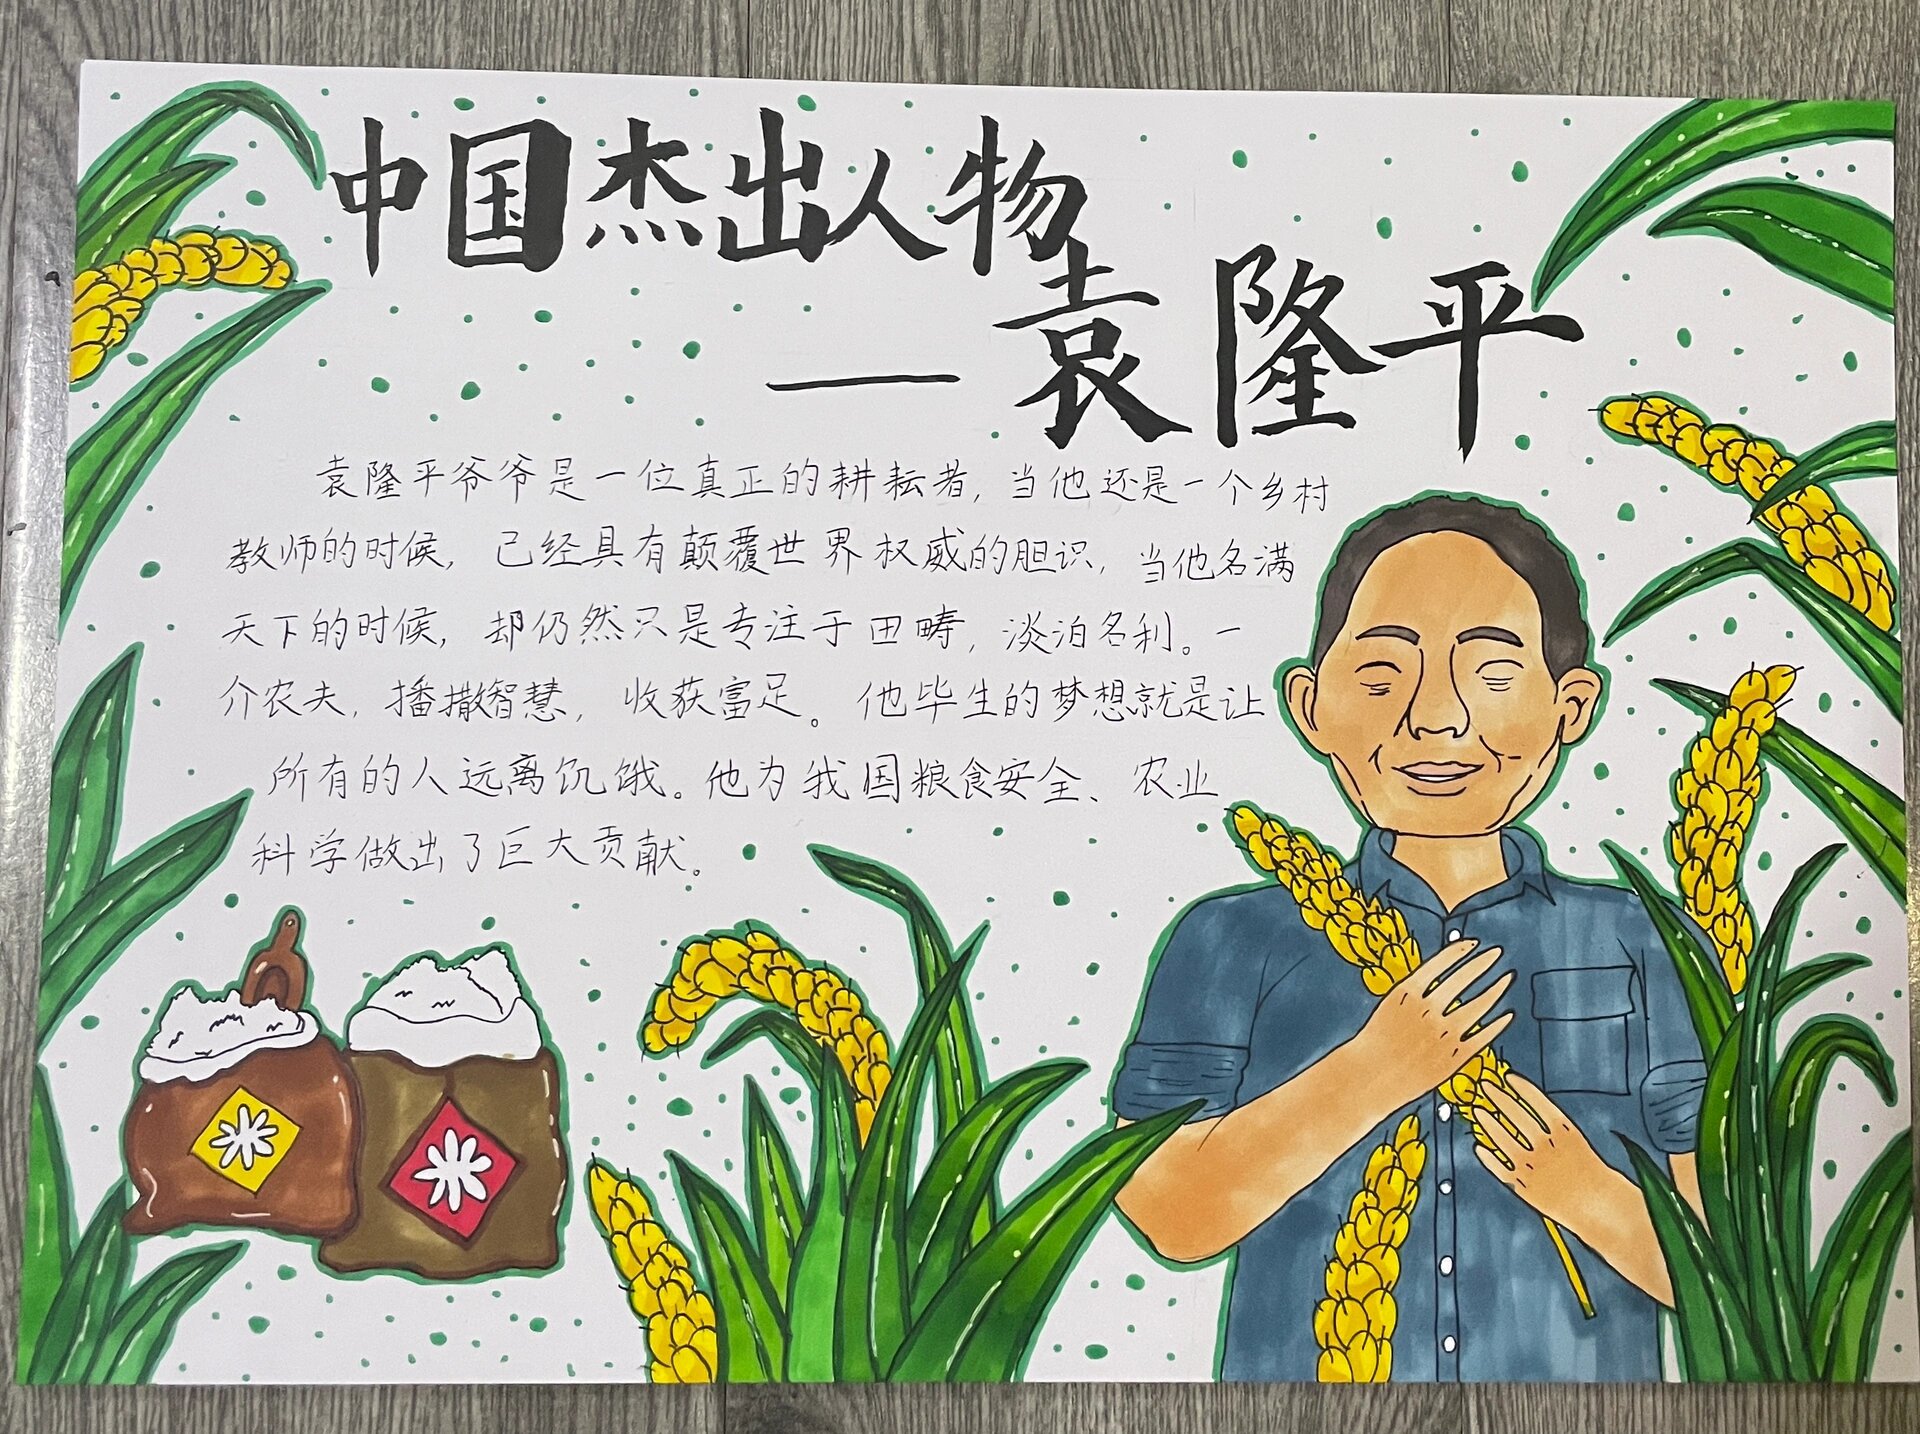 中国杰出人物
—袁隆平
袁隆平爷爷是一位真正的耕耘者,当他还是一个乡村
教师的时候,已经具有颠覆世界权威的胆识,当他名满
天下的时候,却仍然只是专注于田畴,淡泊名利。一
介农夫,播撒智慧,收获富足。他毕生的梦想就是让
所有的人远离饥饿。他为我国粮食安全、农业
科学做出了巨大贡献。
米
米